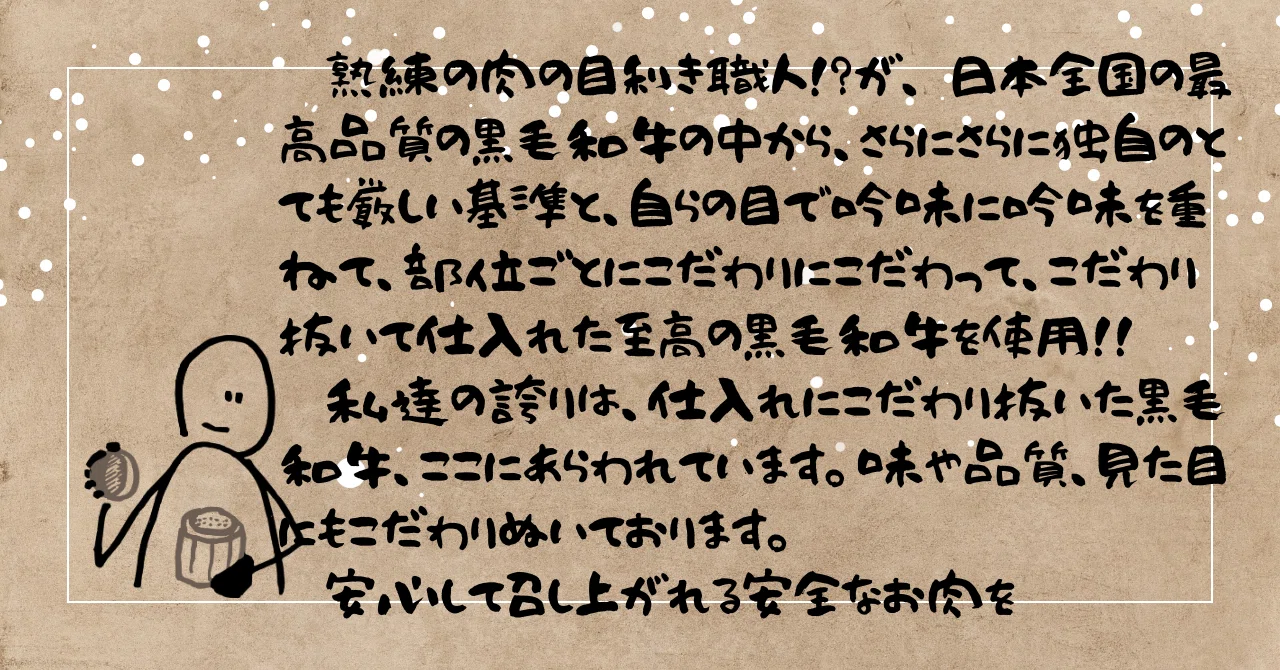 熟練の肉の目利き職人!?が、日本全国の最
高品質の黒毛和牛の中から、さらにさらに独自のと
ても厳しい基準と、自らの目で吟味に吟味を重
ねて、部位ごとにこだわりにこだわって、こだわり
抜いて仕入れた至高の黒毛和牛を使用!!
私達の誇りは、仕入れにこだわり抜いた黒毛
和牛、ここにあらわれています。味や品質、見た目
にもこだわりぬいております。
安心して召し上がれる安全なお肉を